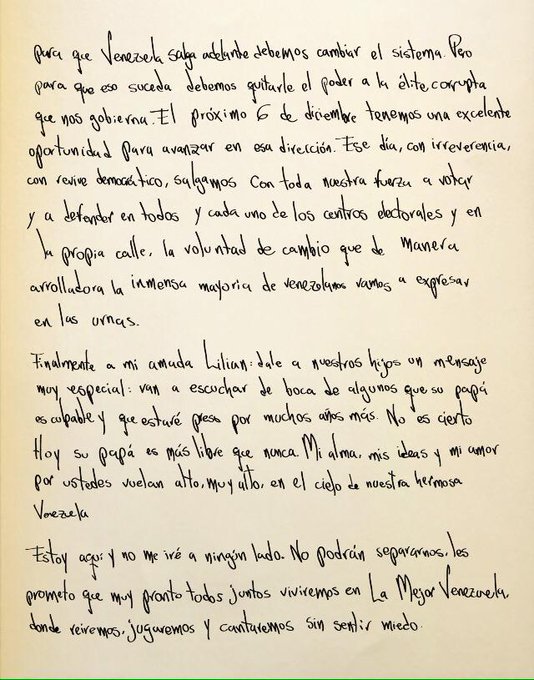 para que Venezuela salga adelante debemos cambiar el sistema. Pero
para que eso suceda debemos quitarle el poder a la élite corrupta
que nos gobierna. El próximo 6 de diciembre tenemos una excelente
oportunidad para avanzar en esa dirección. Ese día, con irreverencia,
con revive democrático, salgamos con toda nuestra fuerza a votar
y a defender en todos y cada uno de los centros electorales y en
la propia calle, la voluntad de cambio que de manera
arrolladora la inmensa mayoría de venezolanos vamos a expresar
en las urnas.
Finalmente a mi amada Lilian: dale a nuestros hijos un mensaje
muy especial: van a escuchar de boca de algunos que su papá
es culpable y que estaré preso por muchos años más. No es cierto
Hoy su papá es más libre que nunca. Mi alma, mis ideas y mi amor
por ustedes vuelan alto, muy alto, en el cielo de nuestra hermosa
Venezuela
Estoy aquí y no me iré a ningún lado. No podrán separarnos, les
prometo que muy pronto todos juntos viviremos en La Mejor Venezuela,
donde reiremos, jugaremos y cantaremos sin sentir miedo.